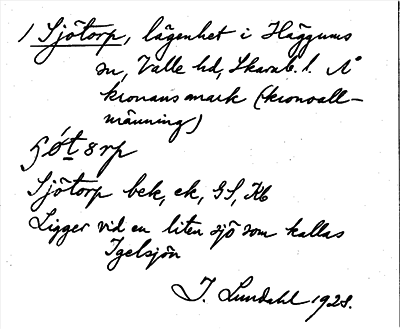 1 Sjötorp, lägenhet i Häggums
sn, Valle hd, Skarab. l. Å
kronans mark (kronoall-
männing)
Sjötorp bek, ek, GS, Kb
Ligger vid en liten sjö som kallas
Igelsjön
J. Lundahl 1928.